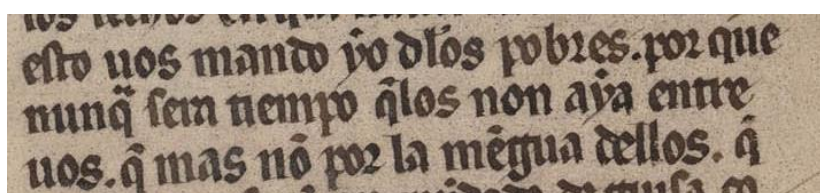 esto uos mando ẏo dl̃os pobres. por que
nunq̃ sera tiempo q̃los non aẏa entre
uos. q̃ mas nõ por la mẽgua dellos. q̃